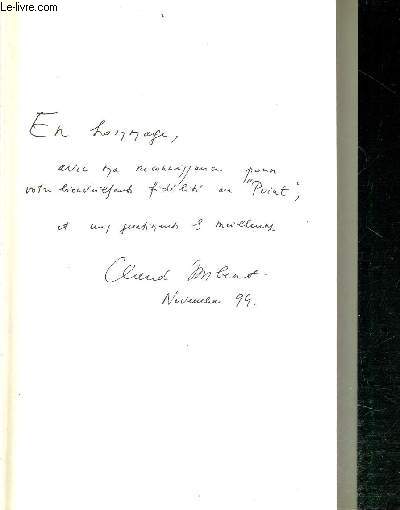 Le-livre.com
En hommage,
avec ma reconnaissance pour
votre bienveillante fidélité au "Point",
et mes sentiments les meilleurs
Claude Imbert
Novembre 94.